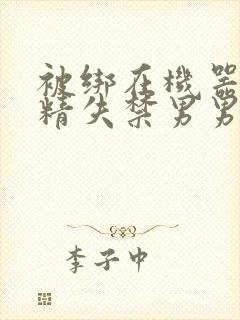 被绑在機器
精失禁男男
李子中